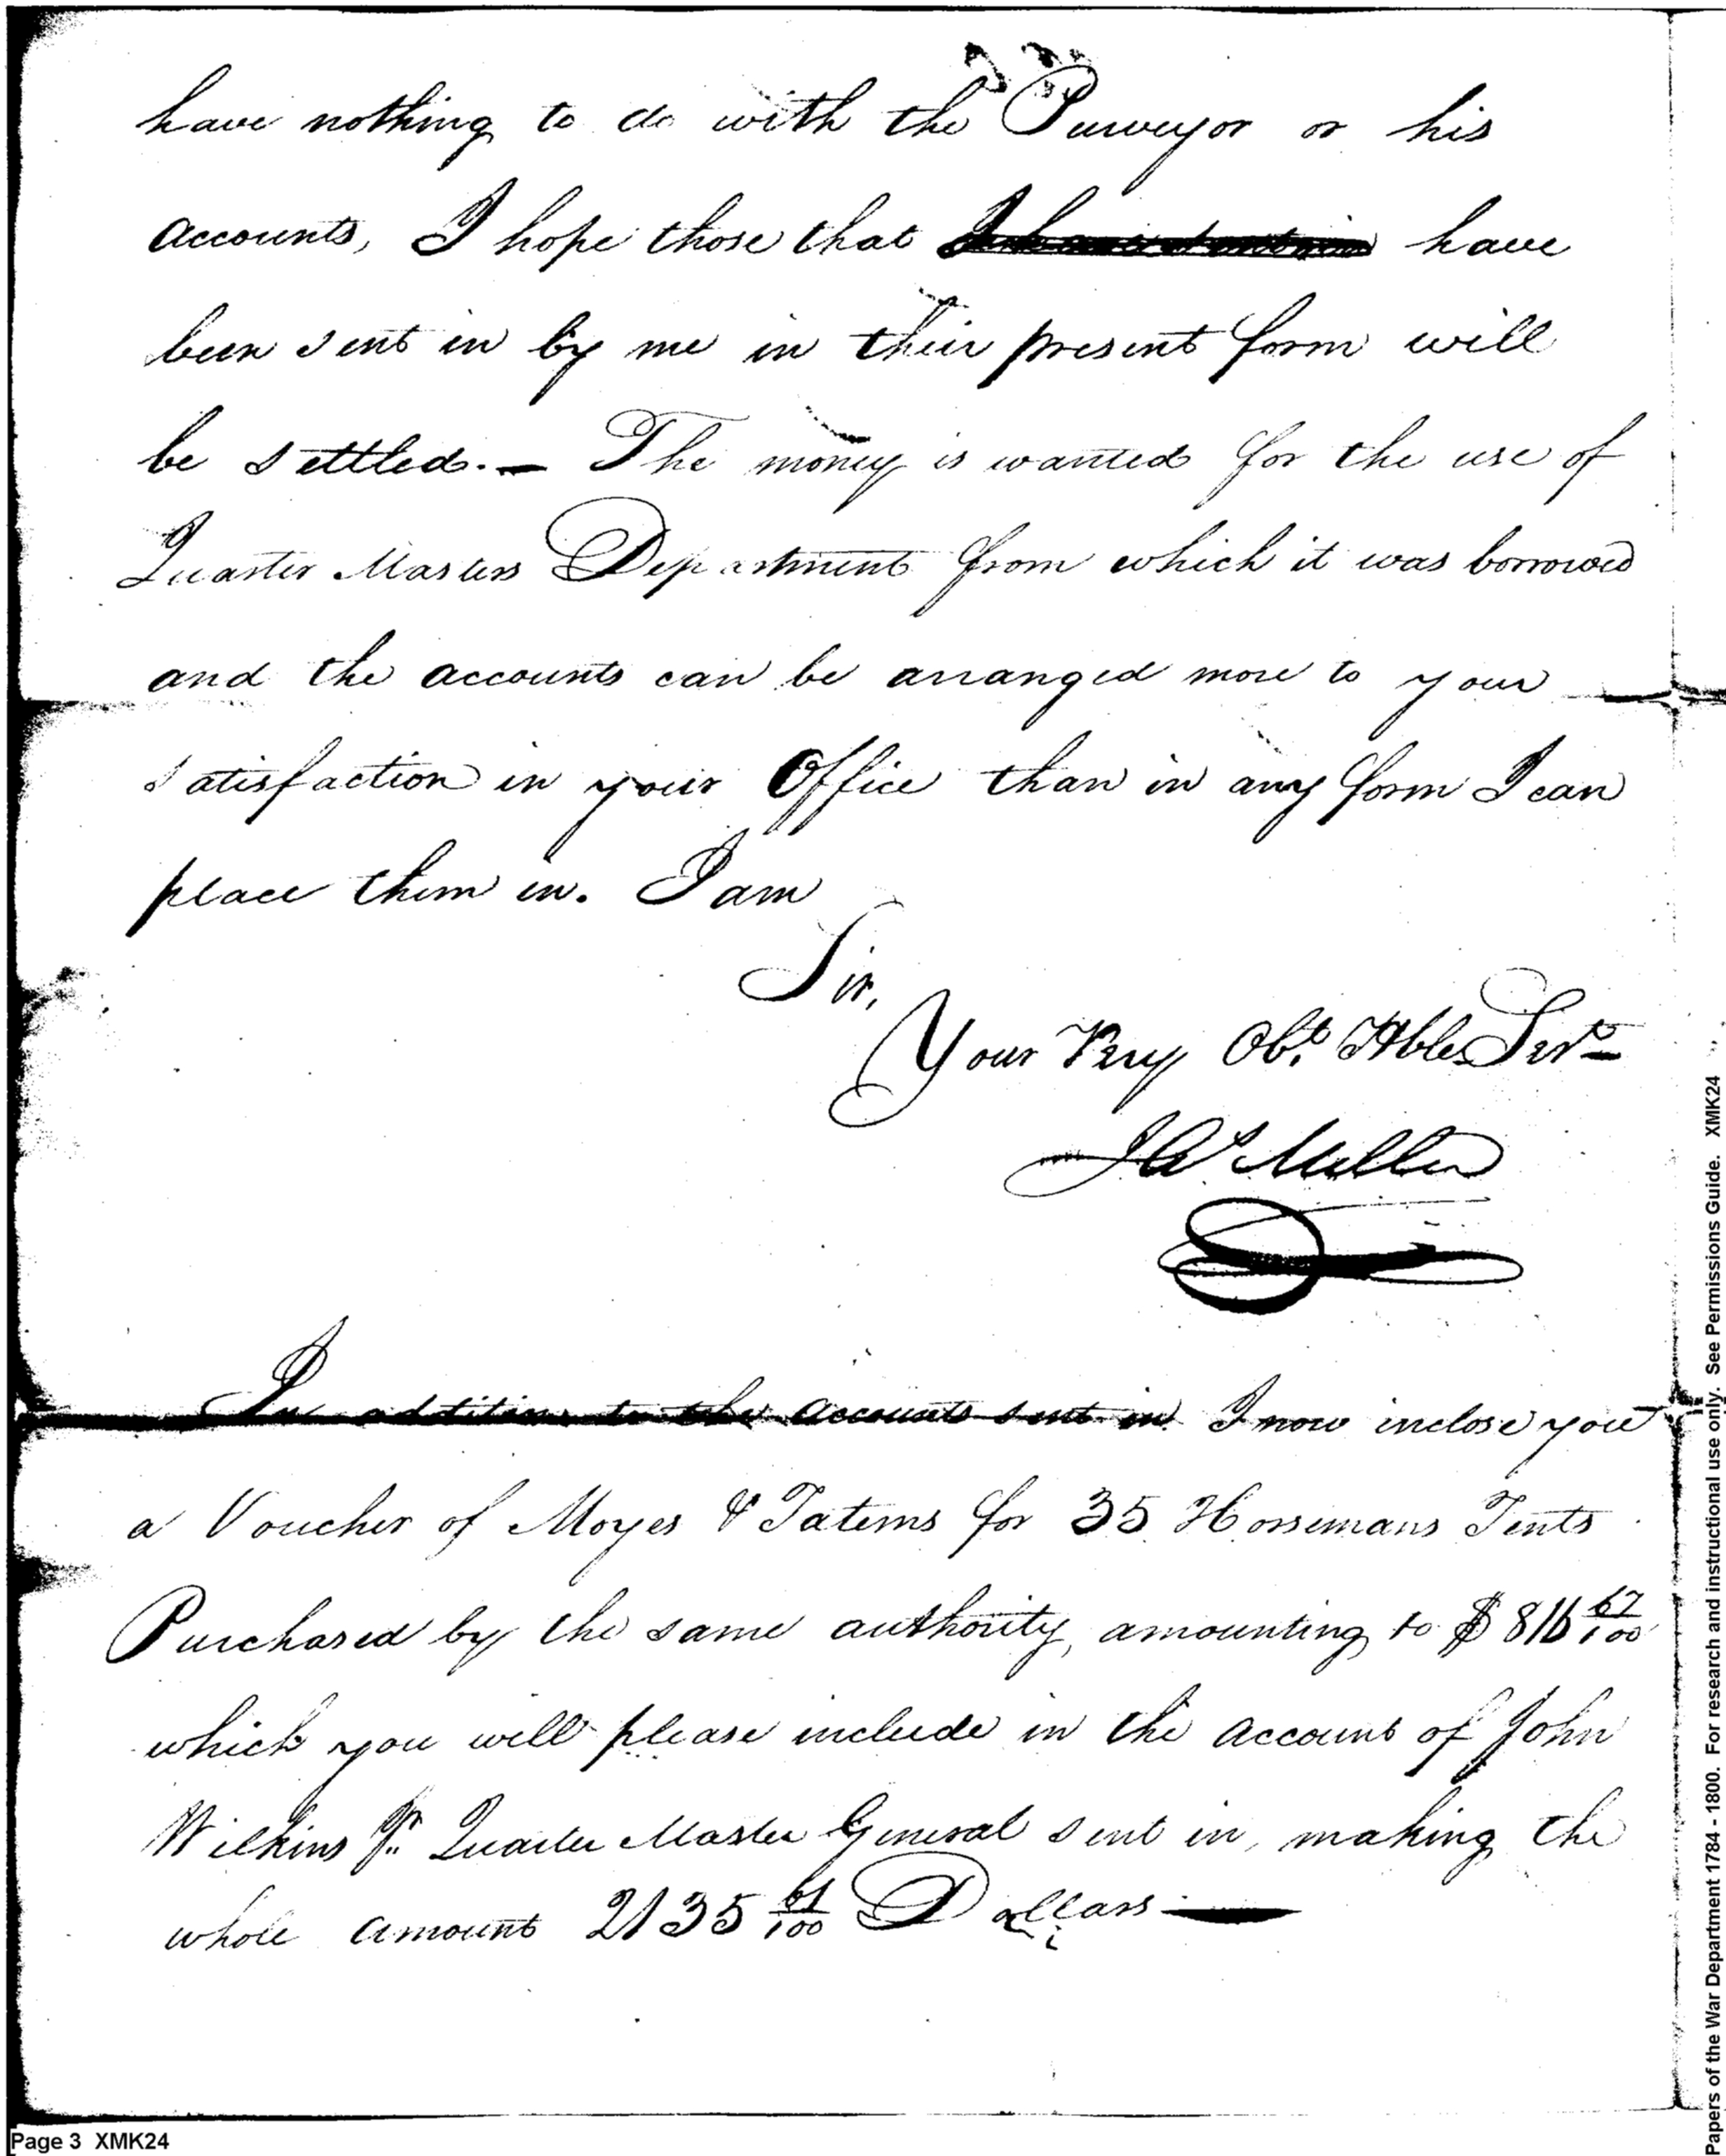 have nothing to do with the Purveyor or his
accounts, I hope those that have
been sent in by me in their present form will
be settled. — The money is wanted for the use of
Quarter Masters Department from which it was borrowed
and the accounts can be arranged more to your
satisfaction in your Office than in any form I can
place them in. I am
Sir,
Your Very Obt. Hble Servt
Jas Miller
In addition to the accounts sent in I now inclose you
a Voucher of Moyes & Tatems for 35 Horsemans Tents
Purchased by the same authority, amounting to $ 816 67/100
which you will please include in the account of John
Wilkins Jr. Quarter Master General sent in, making the
whole amount 2135 61/100 Dollars —
Page 3 XMK24
Papers of the War Department 1784 - 1800. For research and instructional use only. See Permissions Guide. XMK24